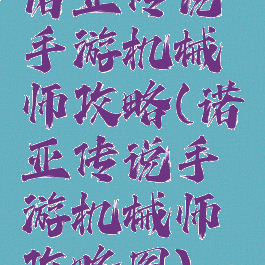 诺亚传说
手游机械
师攻略(诺
亚传说手
游机械师
攻略图)